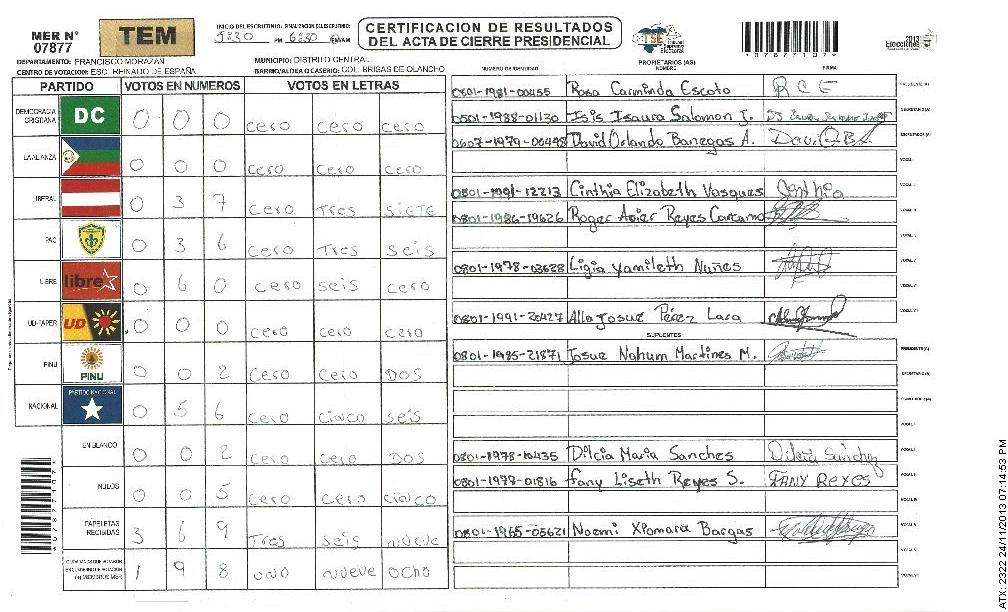 MER N° 07877
TEM
INICIO DEL ESCRUTINIO: FINALIZACION DEL ESCRUTINIO:
PM 6:30
CERTIFICACION DE RESULTADOS
DEL ACTA DE CIERRE PRESIDENCIAL
TSE Tribunal Supremo Electoral
2013 Elecciones
DEPARTAMENTO: FRANCISCO MORAZAN
MUNICIPIO: DISTRITO CENTRAL
CENTRO DE VOTACION: ESC. REINALDO DE ESPAÑA
BARRIO/ALDEA O CASERIO: COL. BRISAS DE OLANCHO
NUMERO DE IDENTIDAD PROPIETARIOS (AS) NOMBRE FIRMA
PARTIDO VOTOS EN NUMEROS VOTOS EN LETRAS
DEMOCRACIA CRISTIANA DC 0 0 0 cero cero cero
LA ALIANZA 0 0 0 cero cero cero
LIBERAL 0 3 7 cero Tres siete
PAC 0 3 6 cero Tres seis
LIBRE libre 0 6 0 cero seis cero
UD-FAPER UD 0 0 0 cero cero cero
PINU PINU 0 0 2 cero cero DOS
NACIONAL PARTIDO NACIONAL 0 5 6 cero cinco seis
EN BLANCO 0 0 2 cero cero DOS
NULOS 0 0 5 cero cero cinco
PAPELETAS RECIBIDAS 3 6 9 Tres seis nueve
CIUDADANOS QUE VOTARON EN CUADERNO DE VOTACION (+) MIEMBROS MER 1 9 8 uno nueve ocho
0801-1981-00455 Rosa Carminda Escoto R C E PRESIDENTE(A)
0501-1988-01130 Isis Isaura Salomon J. SECRETARIO(A)
0607-1979-00448 David Orlando Banegas A. ESCRUTADOR(A)
0801-1991-12213 Cinthia Elizabeth Vasques Cinthia
0801-1986-19626 Roger Avier Reyes Carcamo
0801-1978-03628 Ligia Yamileth Nuñes
0801-1991-20427 Alla Josue Pérez Lara
SUPLENTES
0801-1985-21871 Josue Nahum Martines M. PRESIDENTE(A)
SECRETARIO(A)
ESCRUTADOR(A)
0801-1978-10435 Dilcia Maria Sanches Dilcia Sanchez
0801-1979-01816 Fany Liseth Reyes S. FANY REYES
0801-1965-05621 Noemi Xiomara Bargas
ATX: 2322 24/11/2013 07:14:53 PM